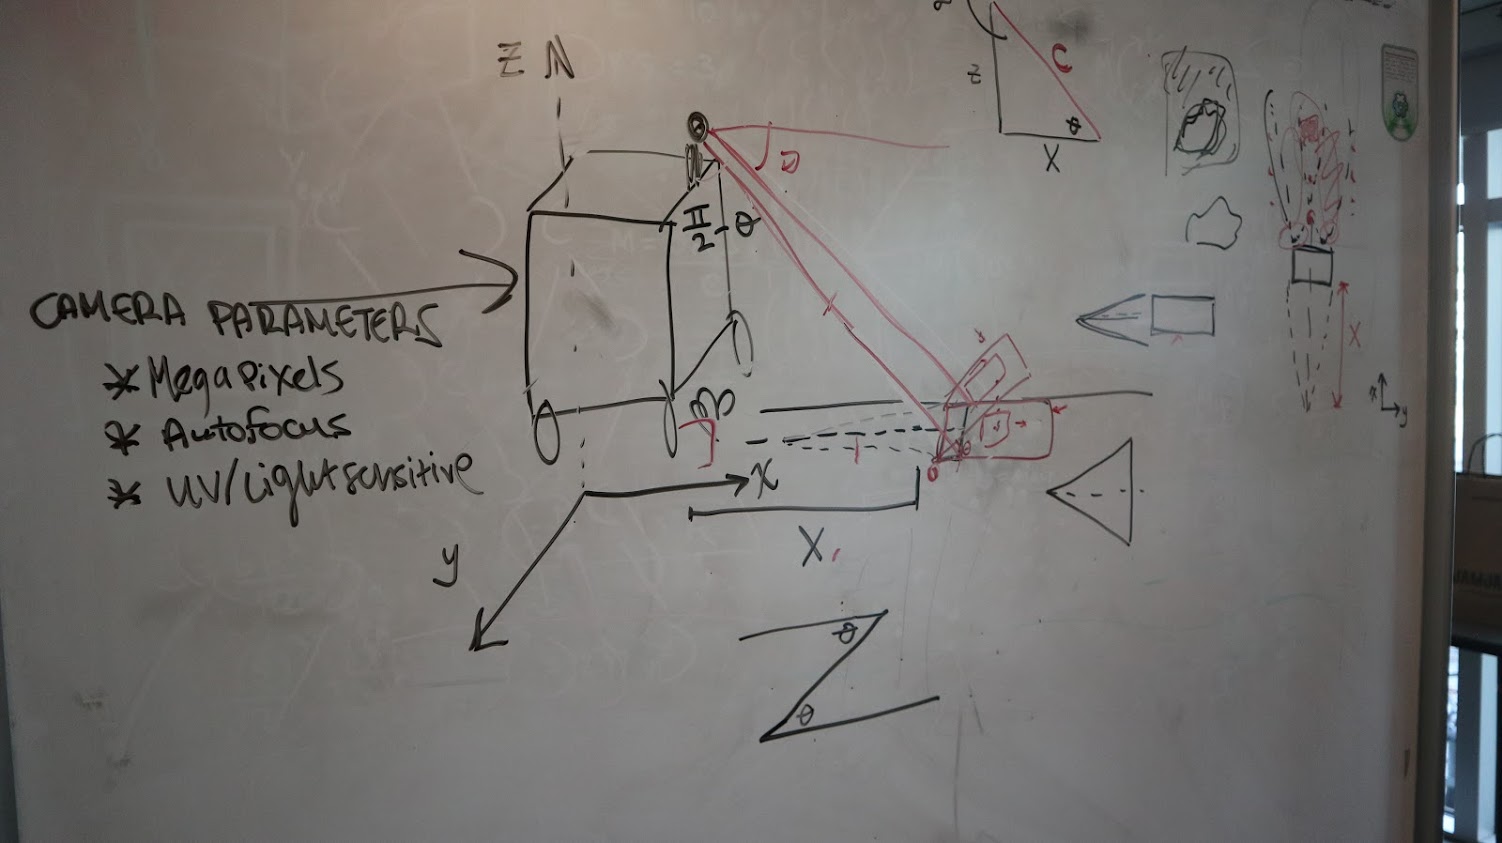 Z N
Z
C
θ
X
π/2 - θ
CAMERA PARAMETERS
* Megapixels
* Autofocus
* UV/Light sensitive
X
x
y
y
X
θ
θ